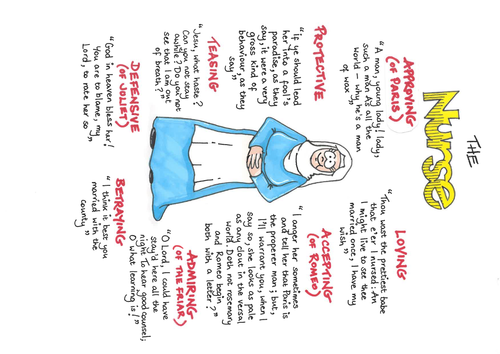 THE
Nurse
APPROVING
(OF PARIS)
"A man, young lady! lady,
such a man As all the
world – why he's a man
of wax"
PROTECTIVE
"if ye should lead
her into a fool's
paradise, as they
say, it were a very
gross kind of
behaviour, as they
say"
TEASING
"Jesu, what haste?
Can you not stay
awhile? Do you not
see that I am out
of breath?"
DEFENSIVE
(OF JULIET)
"God in heaven bless her!
You are to blame, my
Lord, to rate her so"
LOVING
"Thou wast the prettiest babe
that e'er I nursed: An
I might live to see thee
married once, I have my
wish"
ACCEPTING
(OF ROMEO)
"I anger her sometimes
and tell her that Paris is
the properer man; but,
I'll warrant you, when I
say so, she looks as pale
as any clout in the versal
world. Doth not rosemary
and Romeo begin
both with a letter?"
ADMIRING
(OF THE FRIAR)
"O Lord, I could have
stay'd here all the
night To hear good counsel;
O what learning is!"
BETRAYING
"I think it best you
married with the
county"